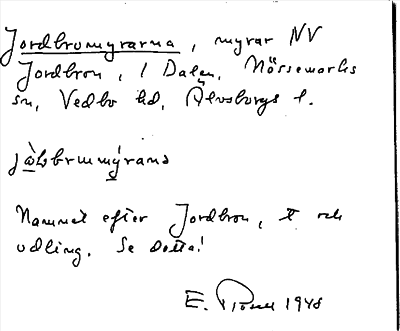 Jordbromyrarna, myrar NV
Jordbron, i Dalen, Nössemarks
sn, Vedbo hd, Älvsborgs l.
Namnet efter Jordbron, t och
odling. Se detta!
E. 1948